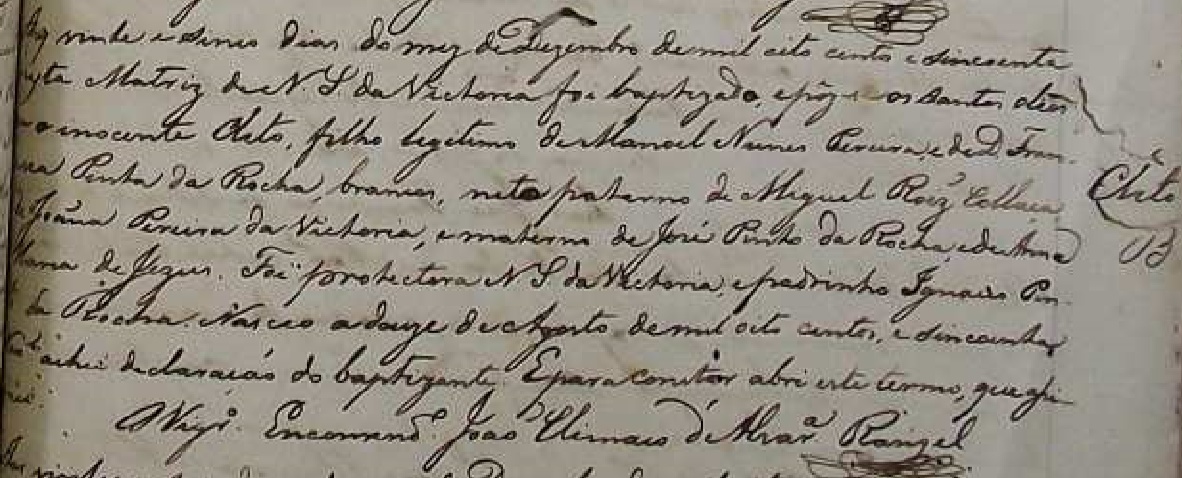 vinte e sinco dias do mez de Dezembro de mil oito centos e sincoenta
Matriz de N. S. da Victoria foi baptizado, e pôz os Santos oleos
o inocente Cleto, filho legitimo de Manoel Nunes Pereira, e de D. Fran-
Pinta da Rocha, brancos, neto paterno de Miguel Roiz Collaço
e Joanna Pereira da Victoria, e materno de José Pinto da Rocha, e de Anna
Maria de Jezus. Foi protectora N. S. da Victoria, e padrinho Ignacio Pin-
da Rocha. Nasceo a doze de Agosto de mil oito centos, e sincoenta
achei declaração do baptizante. E para constar abri este termo, que
Cleto
B
Vigr.º Encomend.º João Climaco d'Alvar.ª Rangel